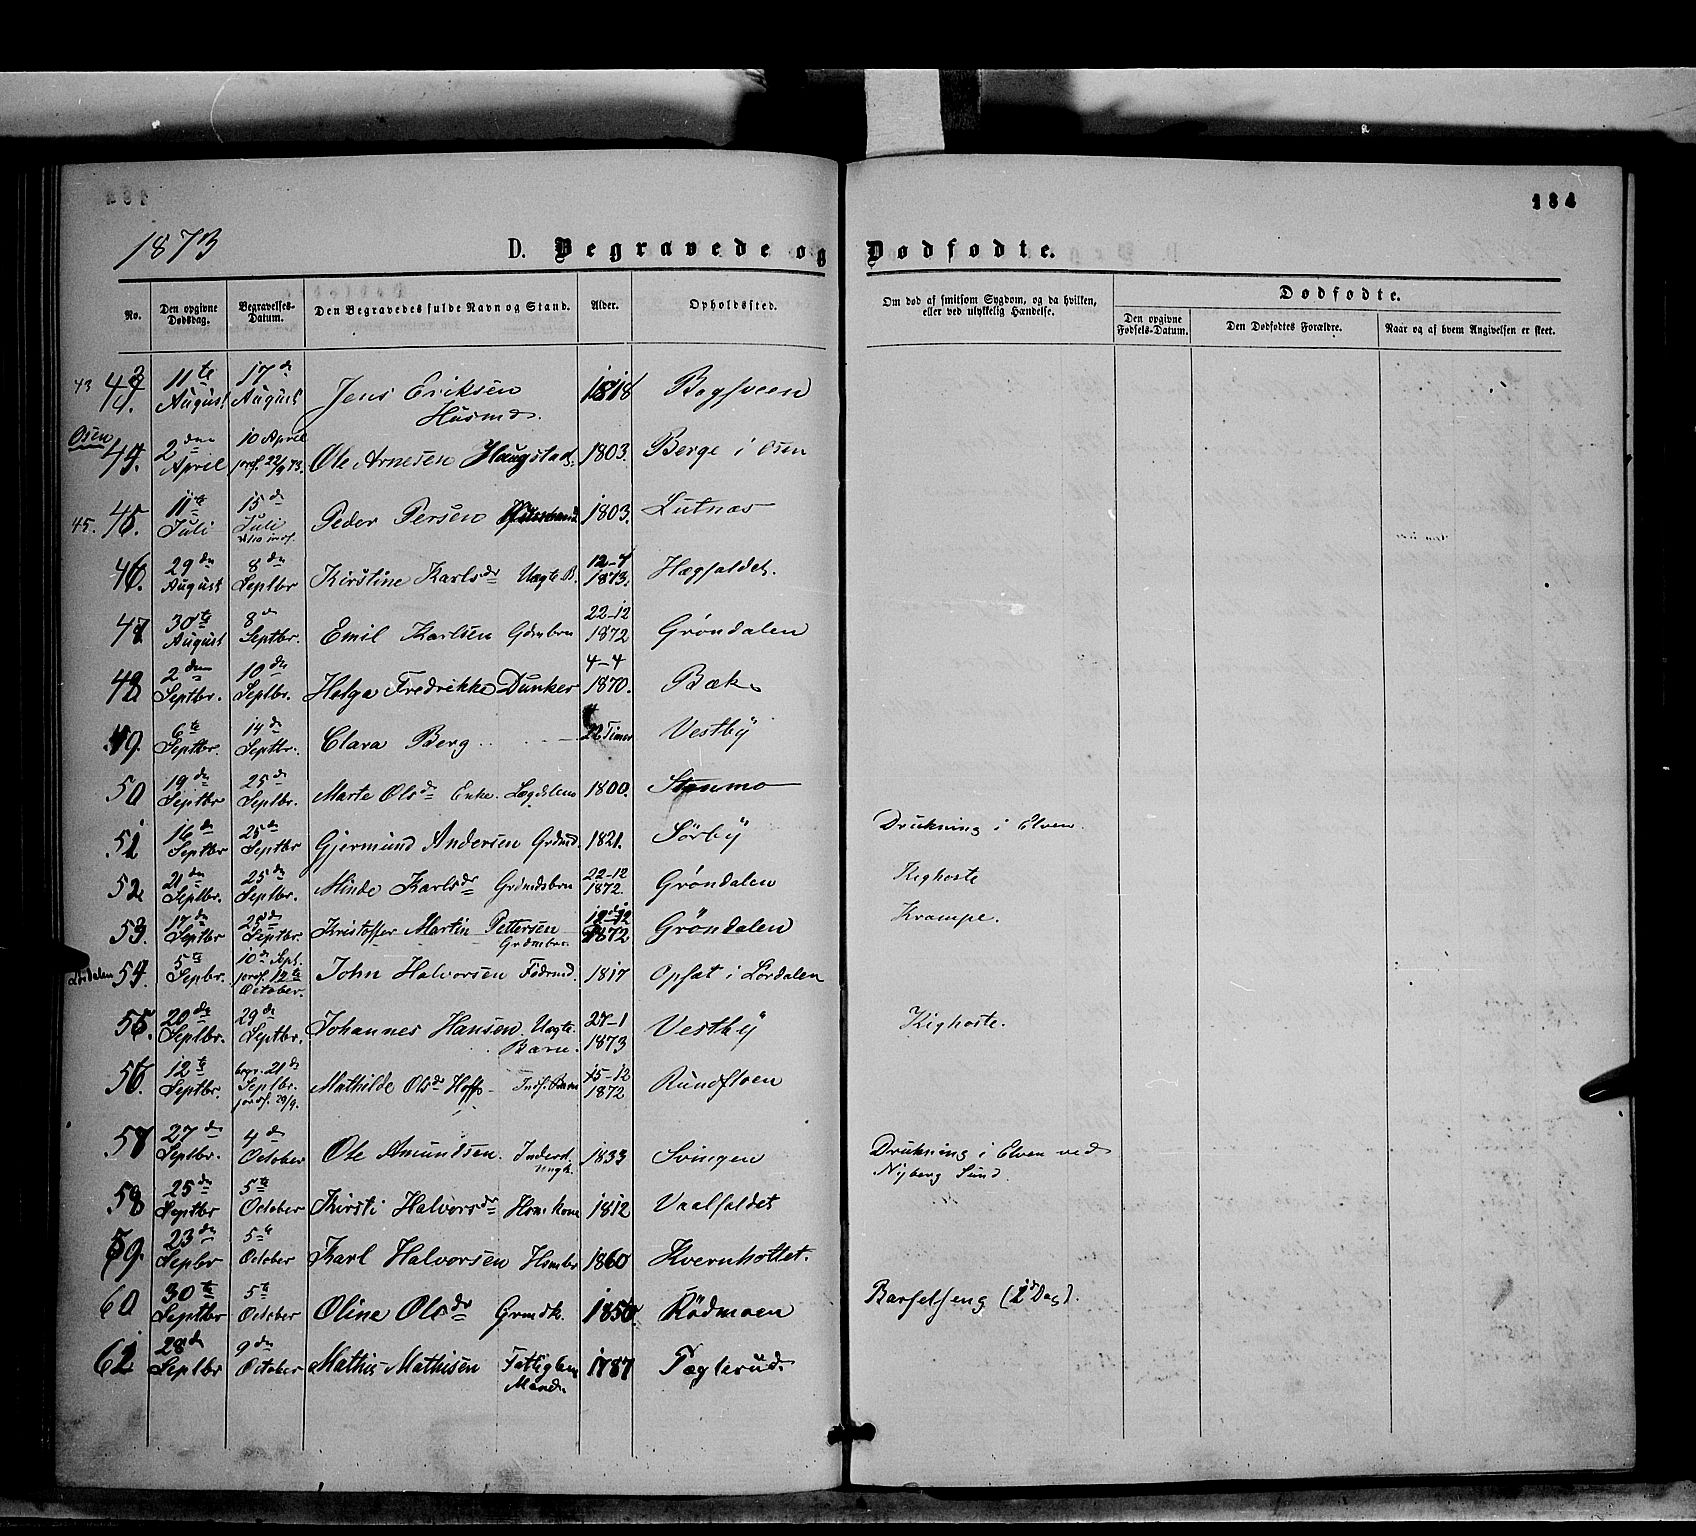 184
1873
D. Begravede og Dødfødte.
No. Den opgivne Dødsdag. Begravelses-Datum. Den Begravedes fulde Navn og Stand. Alder. Opholdssted. Om død af smitsom Sygdom, og da hvilken, eller ved ulykkelig Hændelse. Dødfødte.
Den opgivne Fødsels-Datum. Den Dødfødtes Forældre. Naar og af hvem Angivelsen er skeet.
43 43. 11te August 17de August Jens Eriksen Husmd. 1818 Bogsveen
Osen 44. 2den April 10 April prof. 22/9 73. Ole Arnesen Haugstad 1803. Berge i Osen
45. 45. 11te Juli 15de Juli Peder Persen 1803. Lutnæs
46. 29de August 8de Septbr Kirstine Karlsdr Uægte B. 12-4 1873. Hægfaldet.
47 30te August 8de Septbr. Emil Karlsen Gdmbrn 22-12 1872 Grøndalen
48 2den Septbr. 10de Septbr. Helga Fredrikke Dunker 4-4 1870. Bæk
49. 6te Septbr. 14de Septbr. Clara Berg 22 Timer Vestby
50 19de Septbr 25de Septbr. Marte Olsdr Enke. Lægdslem 1800. Stenmo
51 16de Septbr 25de Septbr Gjermund Andersen Grdmd. 1821. Sørby Drukning i Elven.
52 21de Septbr. 25de Septbr. Minde Karlsdr Grdmdsbrn 22-12 1872. Grøndalen Kighoste
53. 17de Septbr 25de Septbr. Kristoffer Martin Pettersen Grdmbrn. 1872 Grøndalen Krampe.
Lørdalen 54. 5te Sepbr. 10de Sept. prof. 12te October. John Halvorsen Fødermd. 1817 Opsæt i Lørdalen
55. 20de Septbr. 29de Septbr. Johannes Hansen. Uægte Barn. 27-1 1873 Vestby Kighoste.
56. 12te Septbr. begr. 21de Septbr. prof. 29/9. Mathilde Olsdr Hoff Inds. Barn 15-12 1872 Rundfloen
57 27de Septbr. 4de October Ole Amundsen. Inderst. Ungk. 1833 Svingen Drukning i Elven ved Nyberg Sund.
58 25de Septbr 5te October Kirsti Halvorsdr Hsm. kone 1812 Vaalfaldet
59. 23de Sepbr 5te October Karl Halvorsen Hsmbr 1860 Kvernholtet.
60 30te Septbr 5te October Oline Olsdr Grmdk. 1850. Rødmoen Barselseng (2d Dag).
61 28de Septbr 9de October Mathis Mathisen Fattiglem Mand. 1787 Fæglerud.